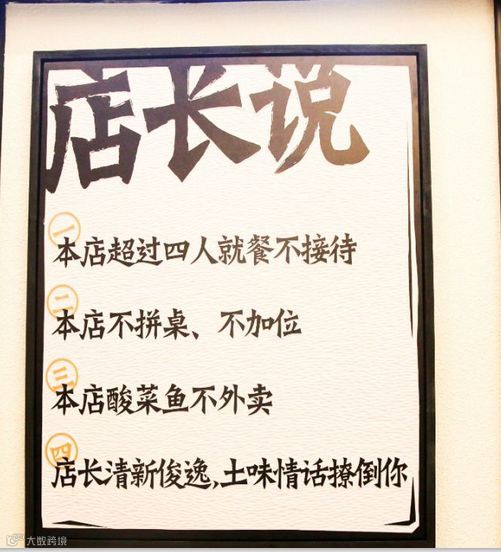 店长说
一
本店超过四人就餐不接待
二
本店不拼桌、不加位
三
本店酸菜鱼不外卖
四
店长清新俊逸,土味情话撩倒你
大数跨境